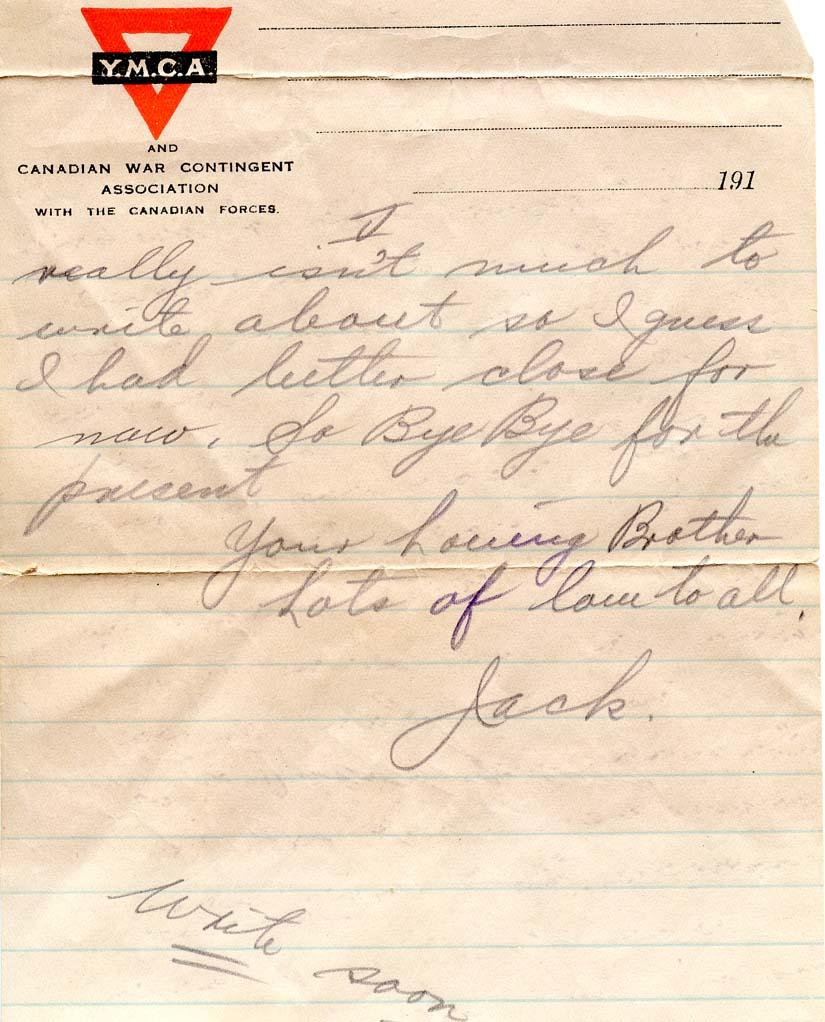 Y.M.C.A.
AND
CANADIAN WAR CONTINGENT
ASSOCIATION
WITH THE CANADIAN FORCES.
191
V
really isn't much to
write about so I guess
I had better close for
now. So Bye Bye for the
present
Your Loving Brother
Lots of love to all.
Jack.
Write soon